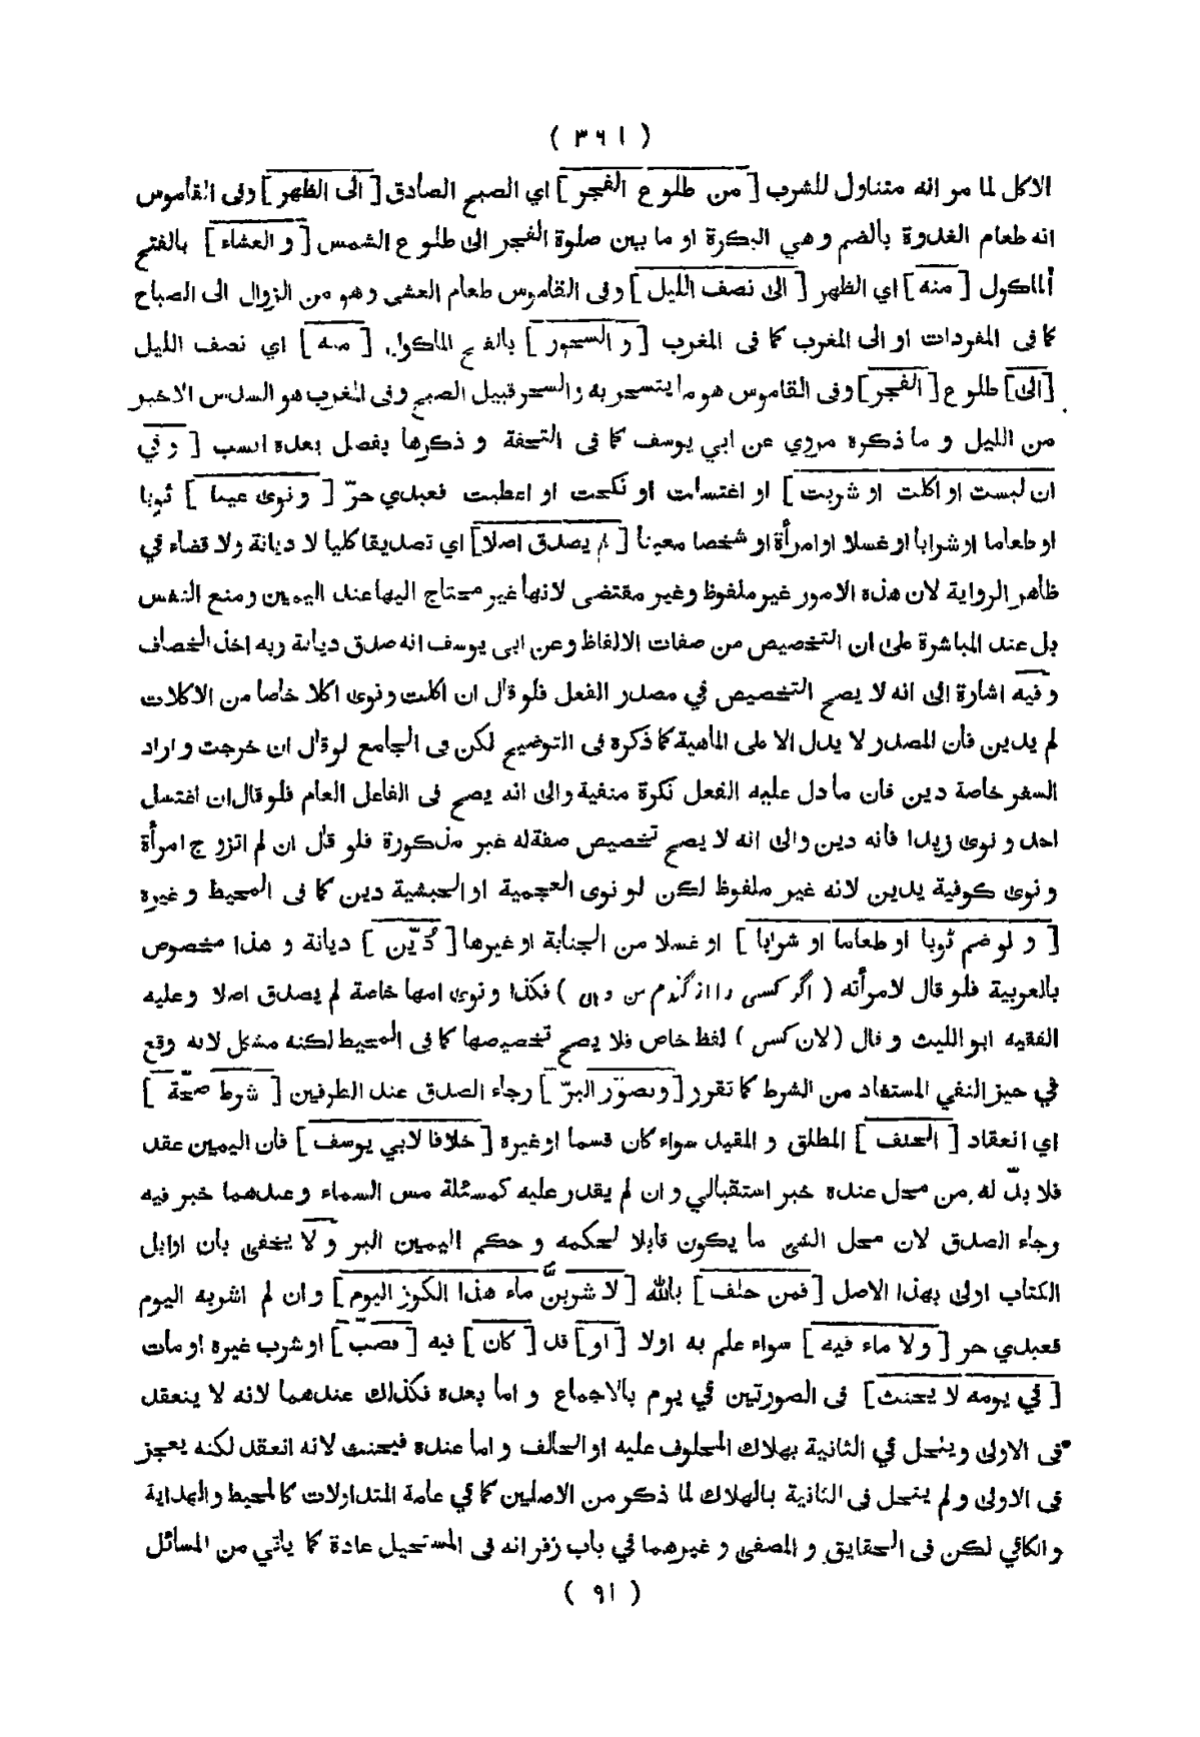 ( ٣٦١ )
الاكل لما مر انه متناول للشرب [ من طلوع الفجر ] اي الصبح الصادق [ الى الظهر ] وفى القاموس
انه طعام الغدوة بالضم وهي البكرة او ما بين صلوة الفجر الى طلوع الشمس [ و العشاء ] بالفتح
المأكول [ منه ] اي الظهر [ الى نصف الليل ] وفى القاموس طعام العشى وهو من الزوال الى الصباح
كما فى المفردات او الى المغرب كما فى المغرب [ و السحور ] بالفتح الماكول [ منه ] اي نصف الليل
[ الى ] طلوع [ الفجر ] وفى القاموس هو ما يتسحر به والسحر قبيل الصبح وفى المغرب هو السدس الاخير
من الليل و ما ذكره مروي عن ابي يوسف كما فى التحفة و ذكرها بفصل بعده انسب [ و في
ان لبست او اكلت او شربت ] او اغتسلت او نكحت او اعطيت فعبدي حرّ [ و نوى عينا ] ثوبا
او طعاما او شرابا او غسلا او امرأة او شخصا معينا [ لم يصدق اصلا ] اي تصديقا كليا لا ديانة ولا قضاء في
ظاهر الرواية لان هذه الامور غير ملفوظ وغير مقتضى لانها غير محتاج اليها عند اليمين ومنع النفس
بل عند المباشرة على ان التخصيص من صفات الالفاظ وعن ابى يوسف انه صدق ديانة وبه اخذ الخصاف
و فيه اشارة الى انه لا يصح التخصيص في مصدر الفعل فلو قال ان اكلت ونوى اكلا خاصا من الاكلات
لم يدين فان المصدر لا يدل الا على الماهية كما ذكره فى التوضيح لكن فى الجامع لو قال ان خرجت واراد
السفر خاصة دين فان ما دل عليه الفعل نكرة منفية والى انه يصح فى الفاعل العام فلو قال ان اغتسل
احد و نوى زيدا فانه دين والى انه لا يصح تخصيص صفة له غير مذكورة فلو قال ان لم اتزوج امرأة
و نوى كوفية يدين لانه غير ملفوظ لكن لو نوى العجمية او الحبشية دين كما فى المحيط و غيره
[ و لو ضم ثوبا او طعاما او شرابا ] او غسلا من الجنابة او غيرها [ دُيّن ] ديانة و هذا مخصوص
بالعربية فلو قال لامرأته ( اگر کسى را از گندم من دهى ) فكذا ونوى امها خاصة لم يصدق اصلا وعليه
الفقيه ابو الليث و قال ( لان كسى ) لفظ خاص فلا يصح تخصيصها كما فى المحيط لكنه مشكل لانه وقع
في حيز النفي المستفاد من الشرط كما تقرر [ وتصوّر البرّ ] رجاء الصدق عند الطرفين [ شرط صحّة ]
اي انعقاد [ الحلف ] المطلق و المقيد سواء كان قسما او غيره [ خلافا لابي يوسف ] فان اليمين عقد
فلا بدّ له من محل عنده خبر استقبالي و ان لم يقدر عليه كمسئلة مس السماء وعندهما خبر فيه
رجاء الصدق لان محل الشئ ما يكون قابلا لحكمه و حكم اليمين البر و لا يخفى بان اوايل
الكتاب اولى بهذا الاصل [ فمن حلف ] بالله [ لاشربنّ ماء هذا الكوز اليوم ] و ان لم اشربه اليوم
فعبدي حر [ و لا ماء فيه ] سواء علم به اولا [ او ] قد [ كان ] فيه [ فصبّ ] او شرب غيره او مات
[ في يومه لا يحنث ] فى الصورتين في يوم بالاجماع و اما بعده فكذلك عندهما لانه لا ينعقد
فى الاولى وينحل في الثانية بهلاك المحلوف عليه او الحالف و اما عنده فيحنث لانه انعقد لكنه يعجز
فى الاولى و لم ينحل فى الثانية بالهلاك لما ذكر من الاصلين كما في عامة المتداولات كالمحيط والهداية
و الكافي لكن فى الحقايق و المصفى و غيرهما في باب زفر انه فى المستحيل عادة كما ياتي من المسائل
( ٩١ )